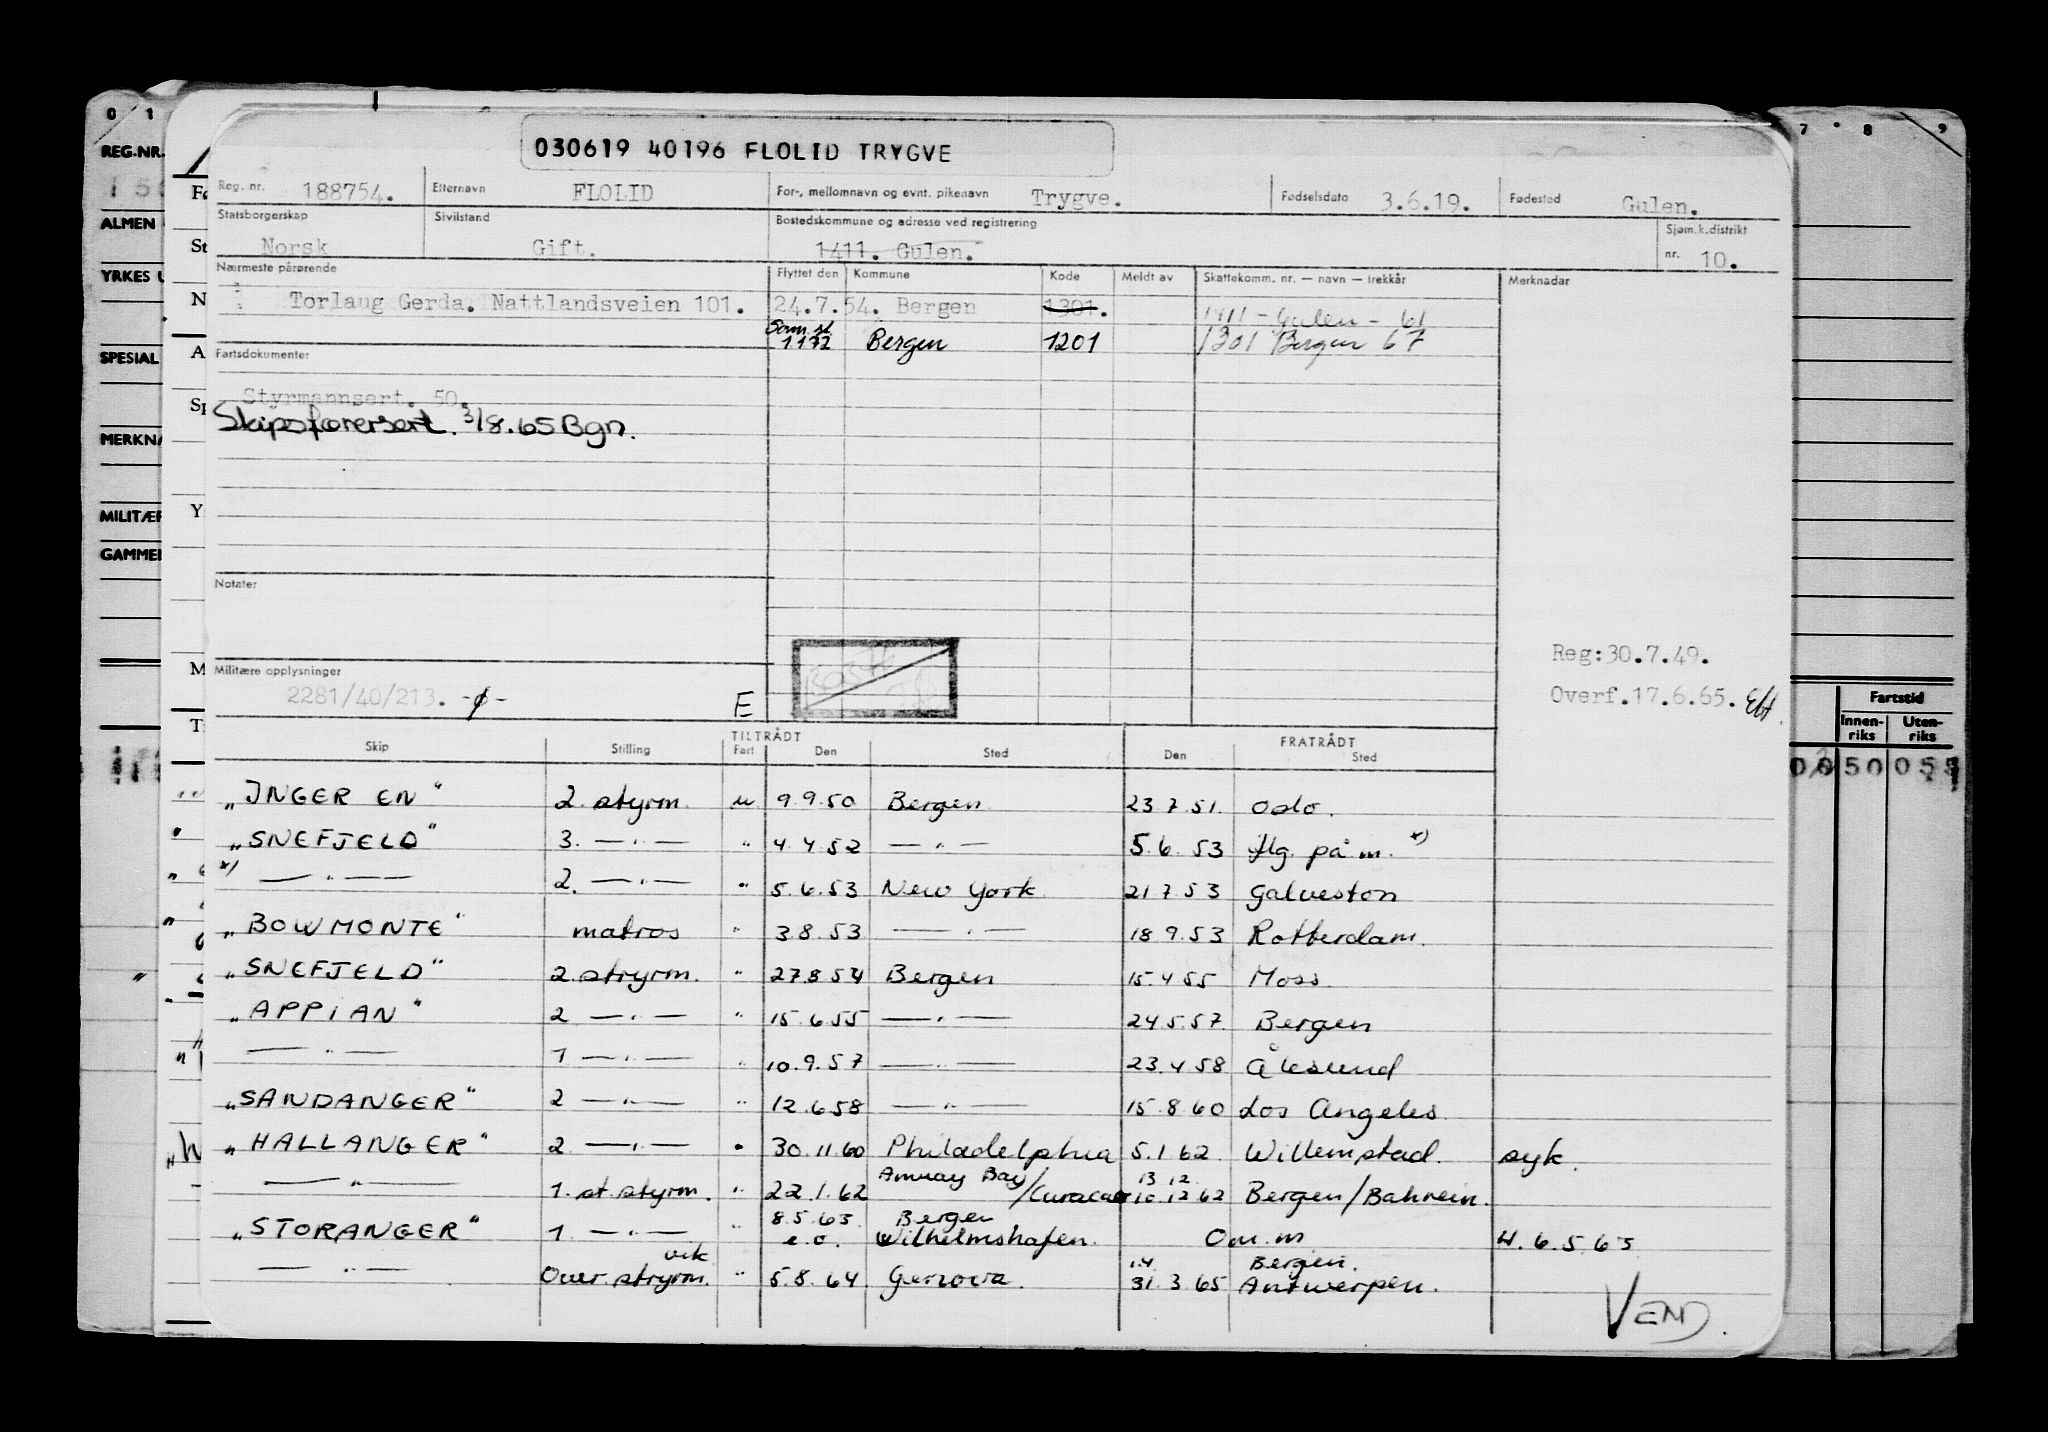 030619 40196 FLOLID TRYGVE
Reg. nr. 188754. Etternavn FLOLID For-, mellomnavn og evnt. pikenavn Trygve. Fødselsdato 3.6.19. Fødested Gulen.
Statsborgerskap Norsk Sivilstand Gift. Bostedskommune og adresse ved registrering 1411. Gulen. Sjøm.k.distrikt nr. 10.
Nærmeste pårørende Flyttet den Kommune Kode Meldt av Skattekomm. nr. — navn — trekkår Merknadar
Torlaug Gerda. Nattlandsveien 101. 24.7.54. Bergen 1301. 1411 - Gulen - 61
1172 Bergen 1201 1301 Bergen 67
Fartsdokumenter
Styrmannsert. 50.
Skipsførersert. 3/8.65 Bgn.
Notater
Militære opplysninger
2281/40/213. E
Reg:30.7.49.
Overf.17.6.65.
Skip Stilling TILTRÅDT Fart Den Sted FRATRÅDT Den Sted
„INGER EN" 2. styrm. u 9.9.50 Bergen 23.7.51. Oslo.
„SNEFJELD" 3. —„— " 4.4.52 —„— 5.6.53 flg. på m. x)
x) —„— 2. —„— " 5.6.53 New York 21.7.53 Galveston
„BOW MONTE" matros " 3.8.53 —„— 18.9.53 Rotterdam.
„SNEFJELD" 2. stryrm. " 27.8.54 Bergen 15.4.55 Moss.
„APPIAN" 2 —„— " 15.6.55 —„— 24.5.57. Bergen
—„— 1 —„— " 10.9.57 —„— 23.4.58 Ålesund
„SANDANGER" 2 —„— " 12.6.58 —„— 15.8.60 Los Angeles
„HALLANGER" 2 —„— " 30.11.60 Philadelphia 5.1.62. Willemstad. syk.
—„— 1. st. styrm. " 22.1.62 Amuay Bay/Curacao 13.12 10.12.62 Bergen/Bahrein.
„STORANGER" 1. —„— " 8.5.63. e.o. Bergen Wilhelmshafen. Om. m 4.6.5.63
—„— vik Over. stryrm. " 5.8.64 Genova. 1.4 31.3.65 Bergen. Antwerpen.
VEND.
REG.NR.
ALMEN
YRKES
SPESIAL
MERKNA
MILITÆR
GAMMEL
Fartstid
Innen-riks Uten-riks